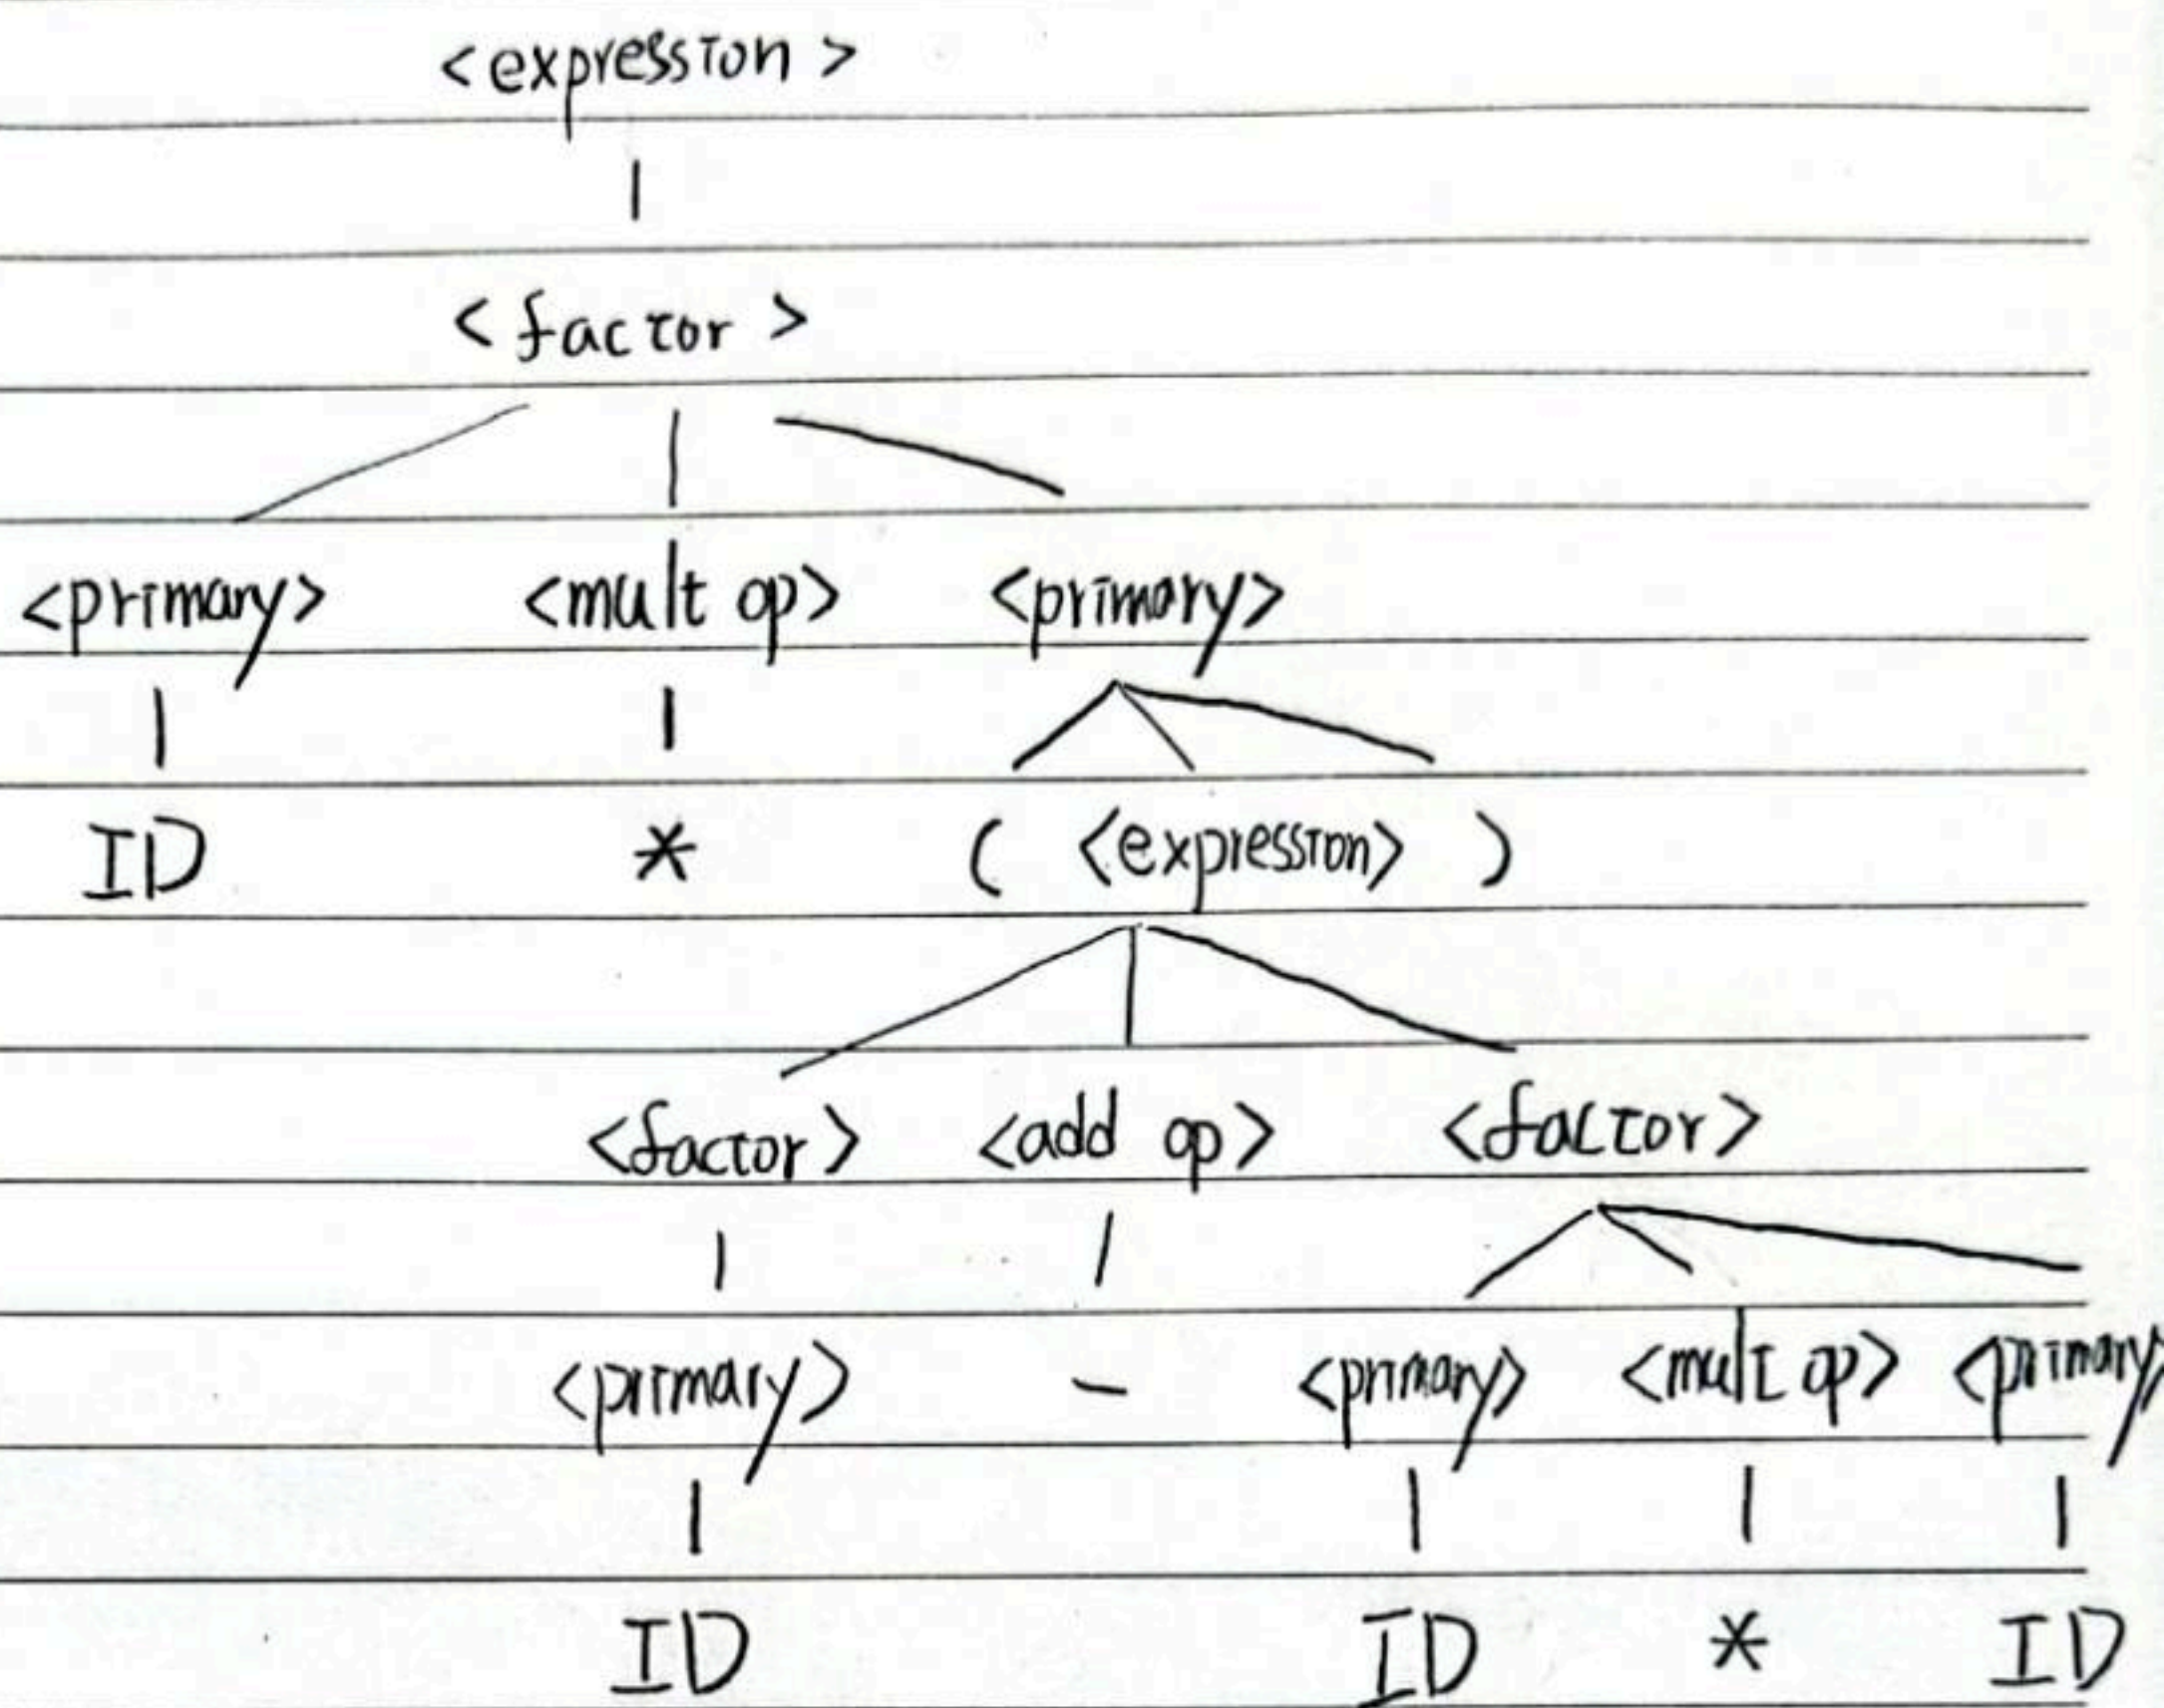 <expression>
<factor>
<primary> <mult op> <primary>
ID * ( <expression> )
<factor> <add op> <factor>
<primary> - <primary> <mult op> <primary>
ID ID * ID